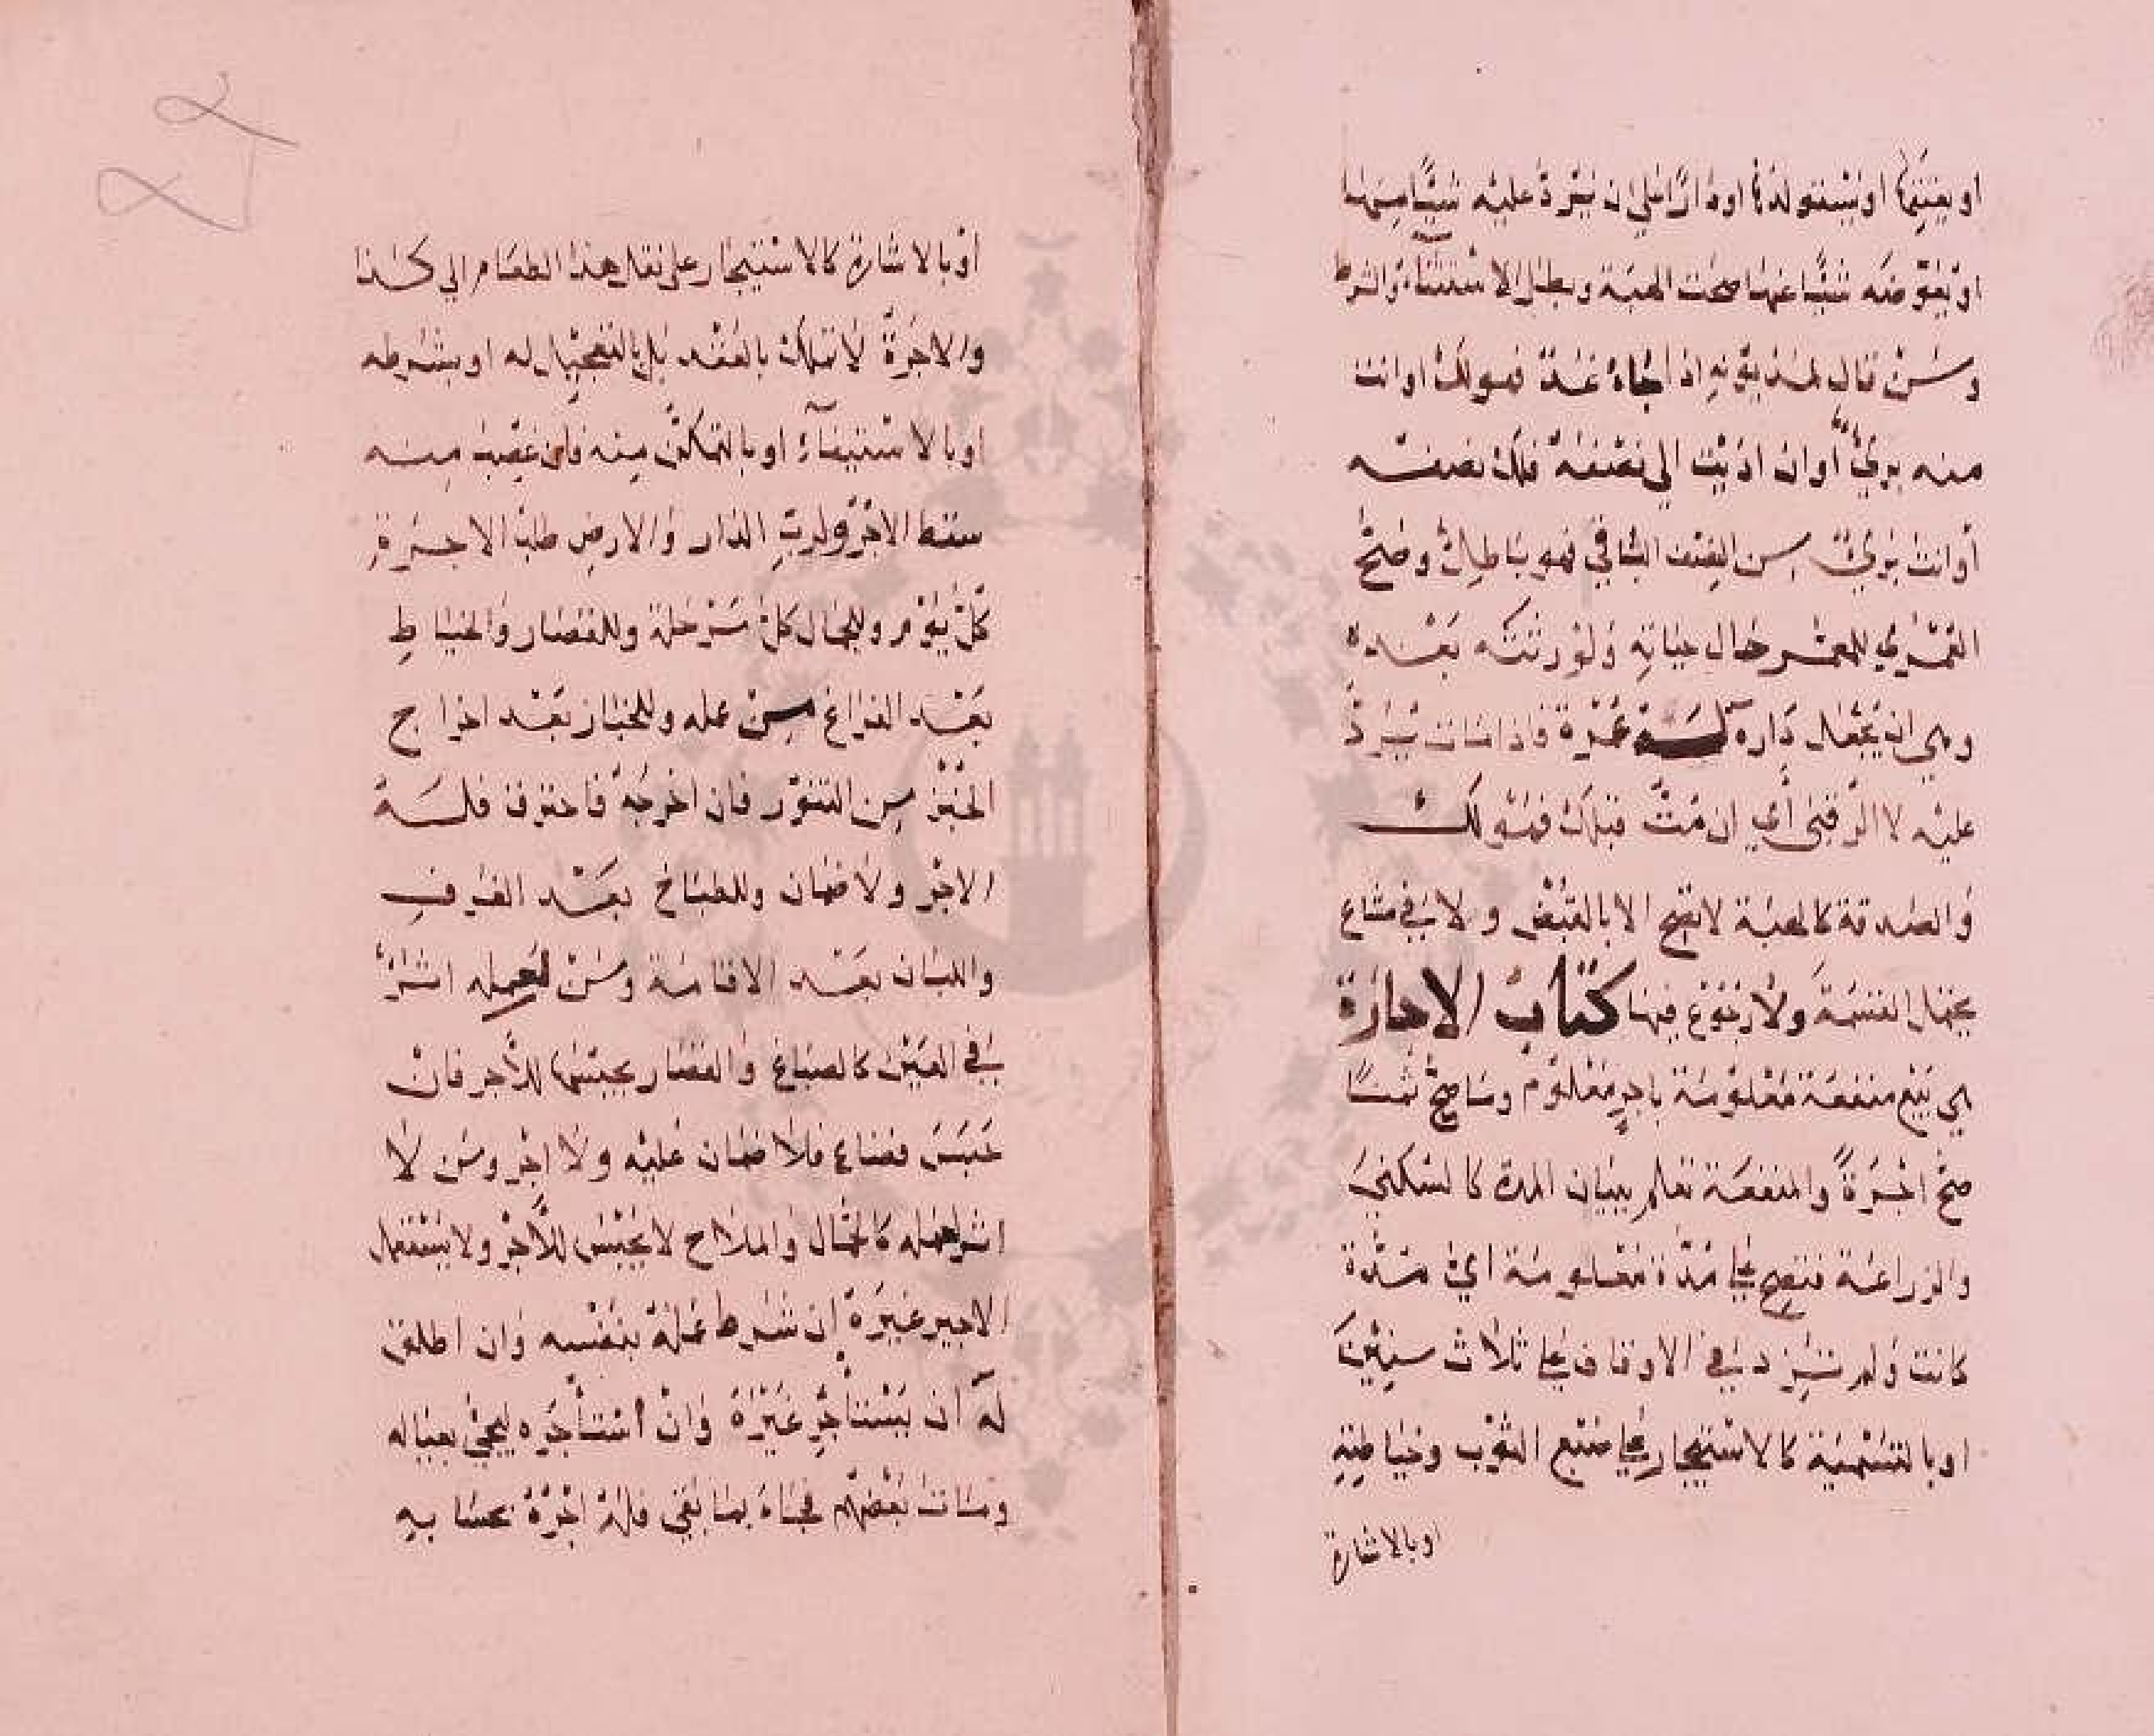 او يعتقها او يستولدها او دارا على ان يرد عليه شيئا منها
او يعوضه شيئا عنها صحت الهبة وبطل الاستثناء والشرط
ومن قال لمديونه اذا جاء غد فهو لك او انت
منه بريء او ان اديت الي نصفه فلك نصفه
او انت بريء من النصف الباقي فهو باطل وصح
العمرى للمعمر حال حياته ولورثته بعده
وهي ان يجعل داره له عمره فاذا مات يرد
عليه لا الرقبى اي ان مت قبلك فهو لك
والصدقة كالهبة لا تصح الا بالقبض ولا في مشاع
يحتمل القسمة ولا رجوع فيها كتاب الاجارة
هي بيع منفعة معلومة باجر معلوم وما صح ثمنا
صح اجرة والمنفعة تعلم ببيان المدة كالسكنى
والزراعة فتصح على مدة معلومة اي مدة
كانت ولم تزد في الاوقاف على ثلاث سنين
او بالتسمية كالاستيجار على صبغ الثوب وخياطته
او بالاشارة
او بالاشارة كالاستيجار على نقل هذا الطعام الى كذا
والاجرة لا تملك بالعقد بل بالتعجيل له او بشرطه
او بالاستيفاء او بالتمكن منه فان غصب منه
سقط الاجر ولرب الدار والارض طلب الاجرة
كل يوم وللجمال كل مرحلة وللقصار والخياط
بعد الفراغ من عمله وللخباز بعد اخراج
الخبز من التنور فان اخرجه فاحترق فله
الاجر ولا ضمان وللطباخ بعد الغرف
واللبان بعد الاقامة ومن لعمله اثر
في العين كالصباغ والقصار يحبسها للاجر فان
حبس فضاع فلا ضمان عليه ولا اجر ومن لا
اثر لعمله كالحمال والملاح لا يحبس للاجر ولا يستعمل
الاجير غيره ان شرط عمله بنفسه وان اطلق
له ان يستأجر غيره وان استأجره ليجيء بعياله
ومات بعضهم فجاء بما بقي فله اجره بحسابه